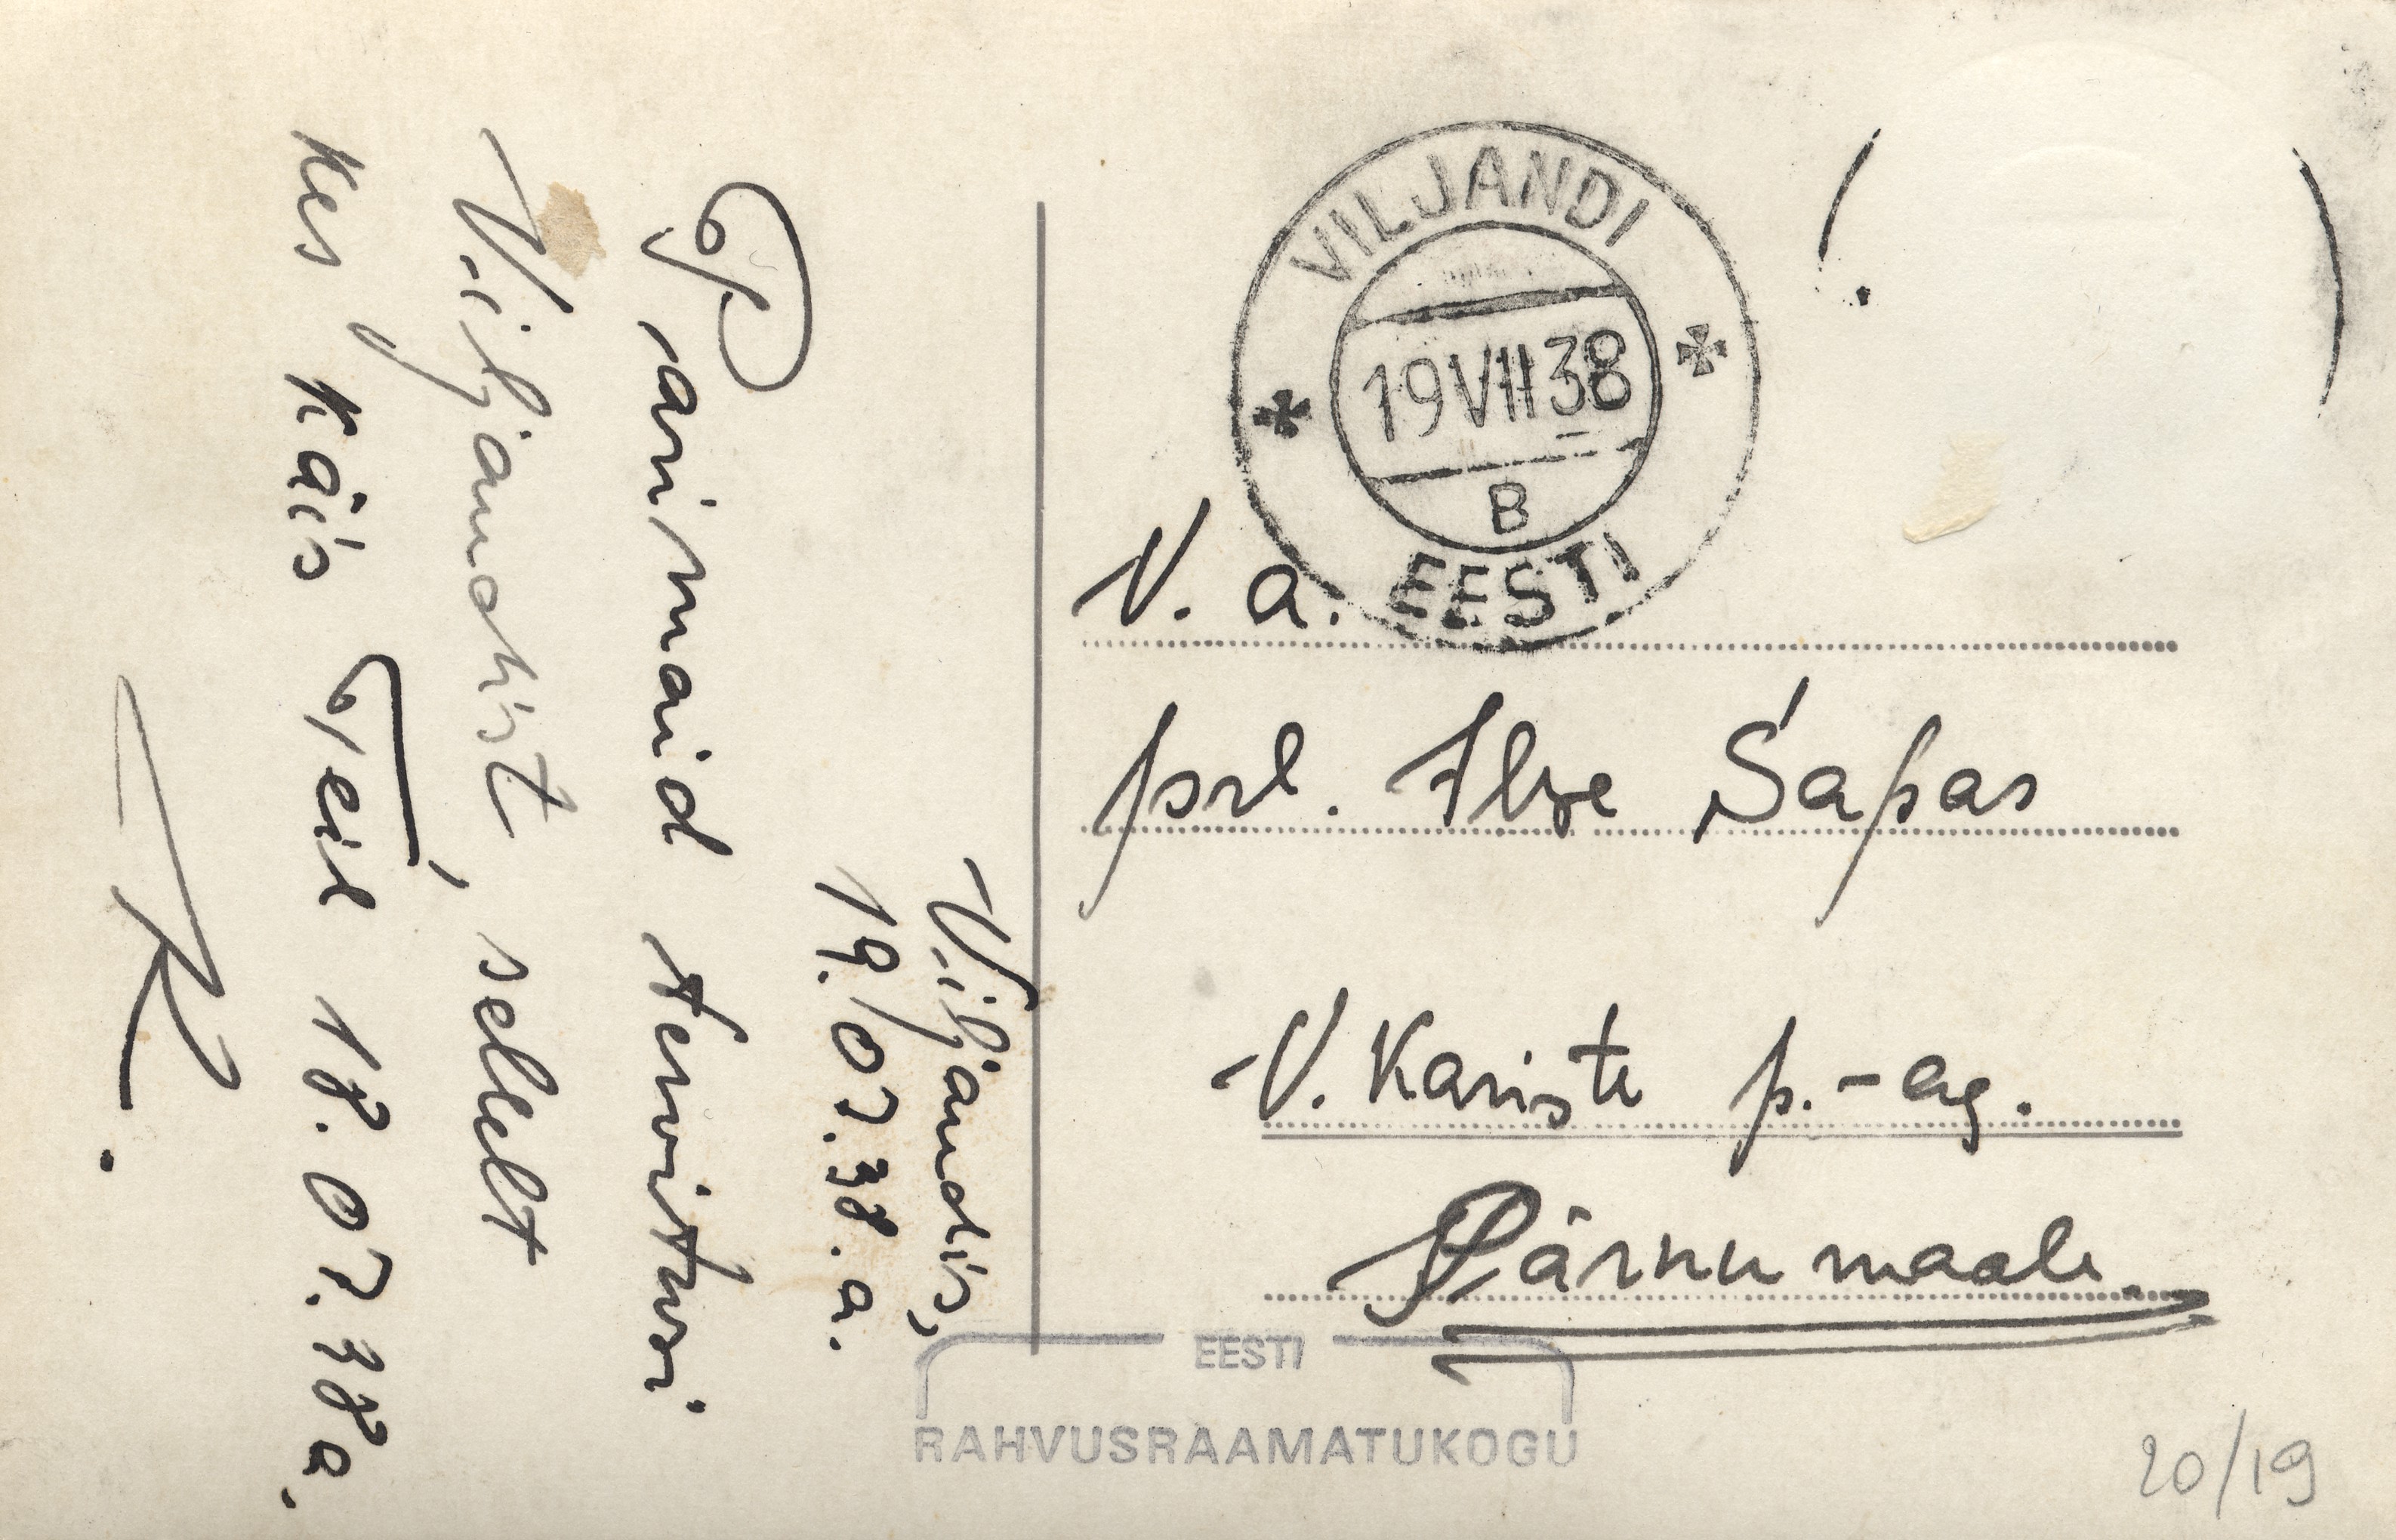 Viljandis,
19./07.38.a.
Parimaid tervitusi
Viljandist, selelt
kes käis Teil 18.07.38a.
K.
VILJANDI
19 VII 38
B
EESTI
V. a.
prl. Ilse Sapas
V. Kariste p.-ag.
Pärnumaale.
EESTI
RAHVUSRAAMATUKOGU
20/19